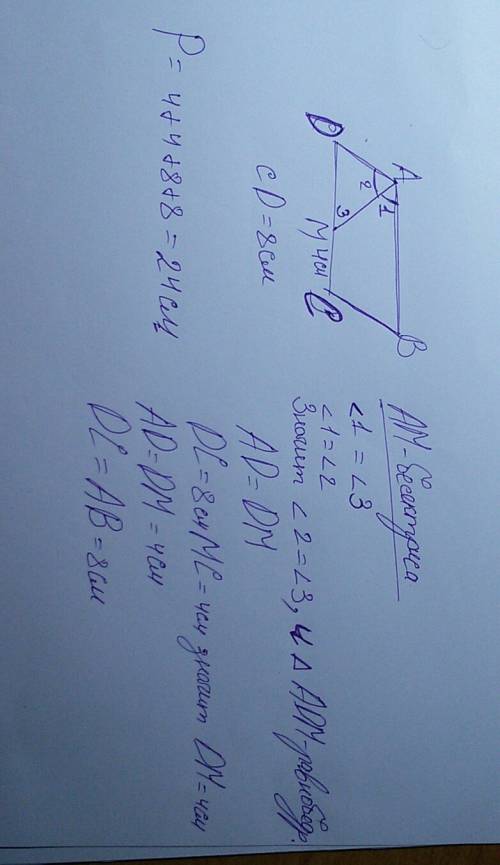 A
B
1
2
3
D
M 4см C
CD = 8см
P = 4+4+8+8 = 24см
AM - бесектриса
∠1 = ∠3
∠1 = ∠2
Значит ∠2 = ∠3, и Δ ADM - равнобедр.
AD = DM
DC = 8см MC = 4см значит DM = 4см
AD = DM = 4см
DC = AB = 8см